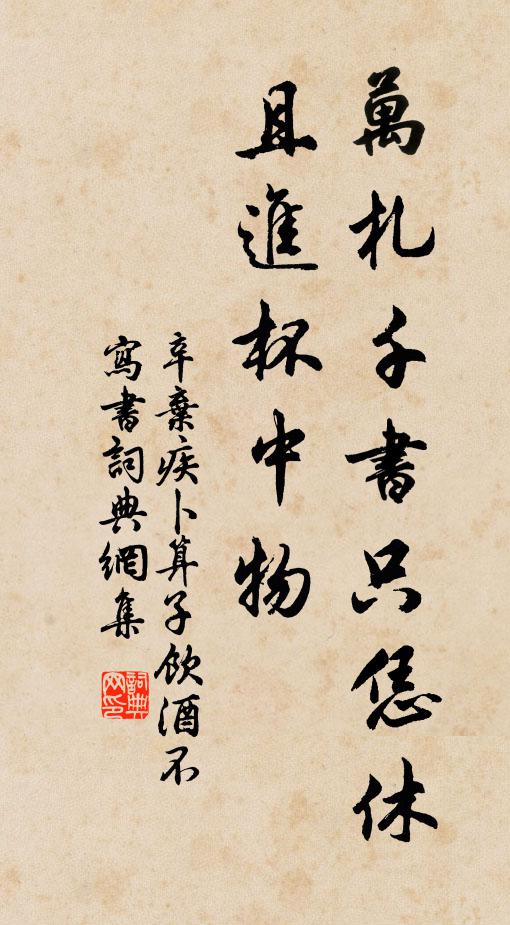 萬札千書只恁休
且進杯中物
辛棄疾卜算子飲酒不
寫書詞典網集
詞典网印